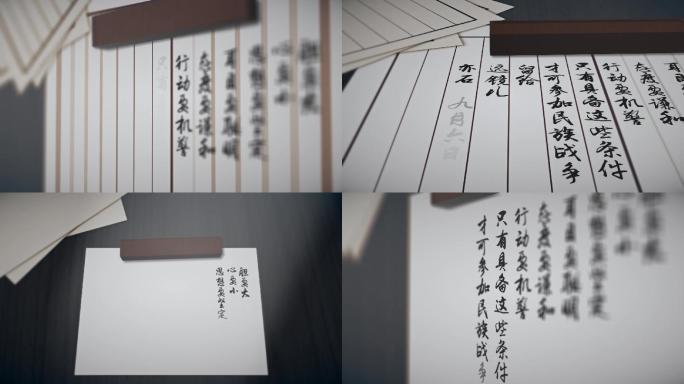 心要小
思想要坚定
耳目要聪明
态度要谦和
行动要机警
只有
态度要谦和
行动要机警
只有具备这些条件
才可参加民族战争
留给
亦石
九月六日
胆要大
心要小
思想要坚定
耳目要聪明
态度要谦和
行动要机警
只有具备这些条件
才可参加民族战争